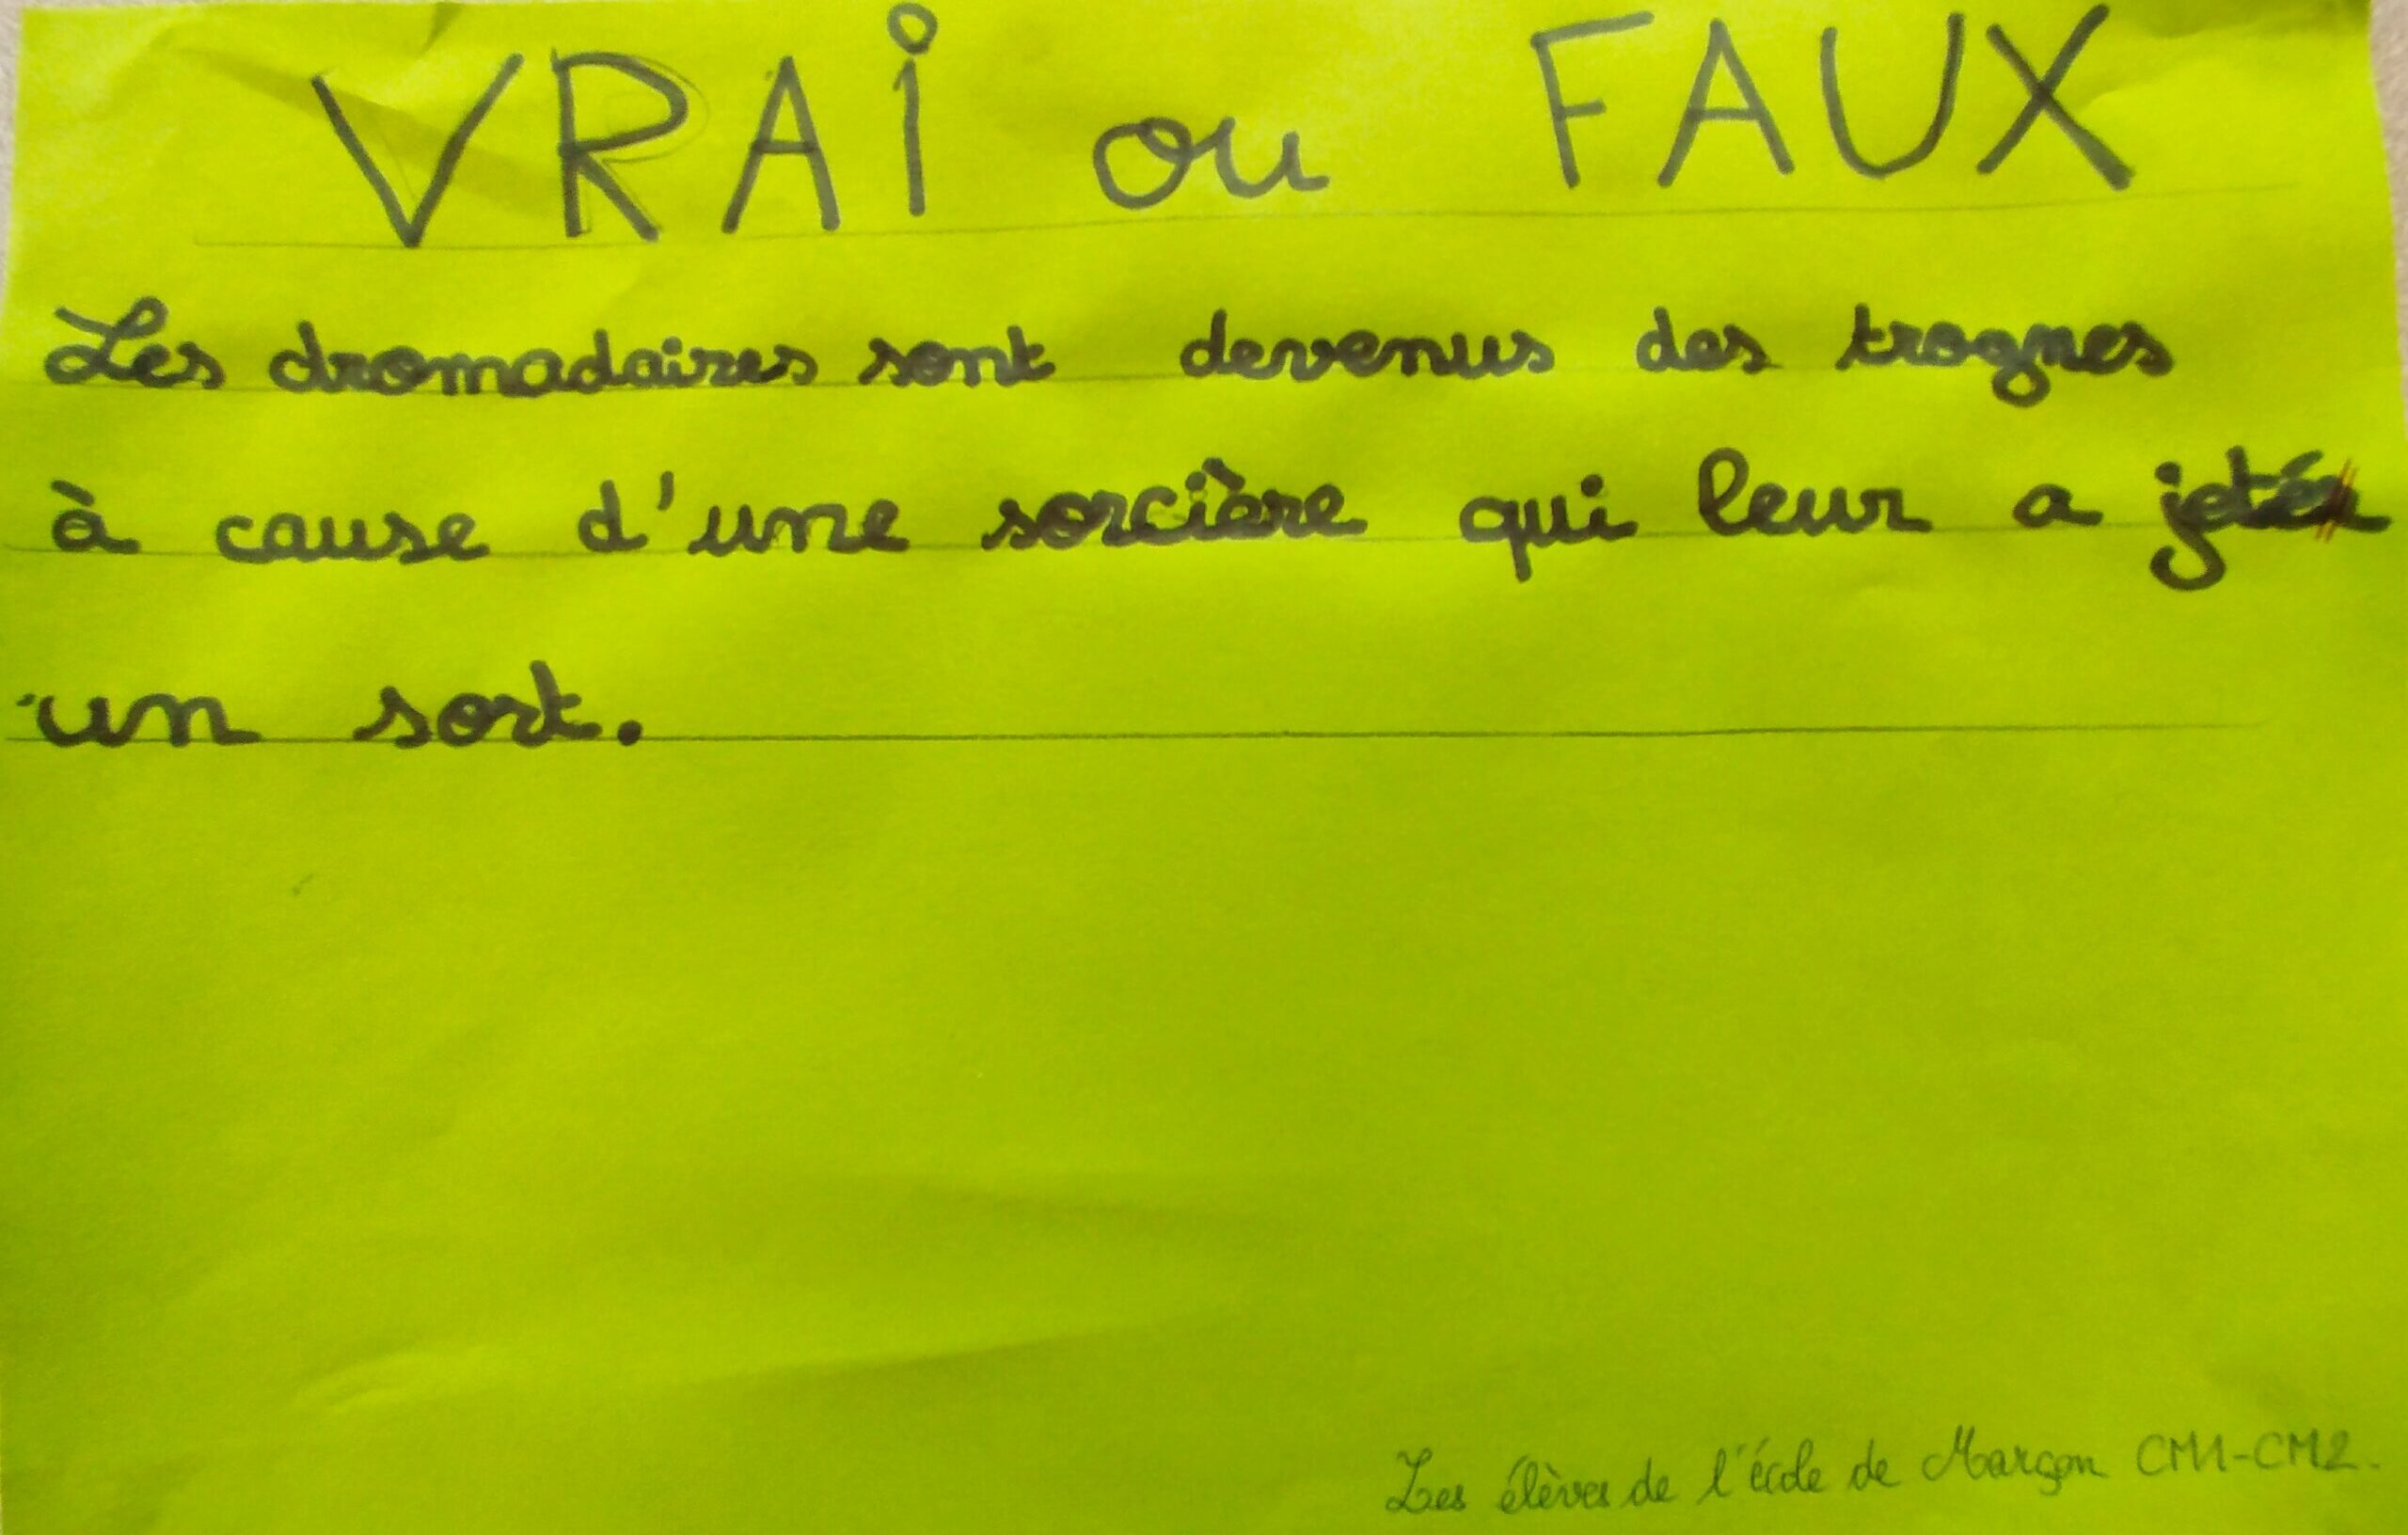 VRAi ou FAUX
Les dromadaires sont devenus des trognes
à cause d'une sorcière qui leur a jeté
un sort.
Les élèves de l'école de Marçon CM1-CM2.